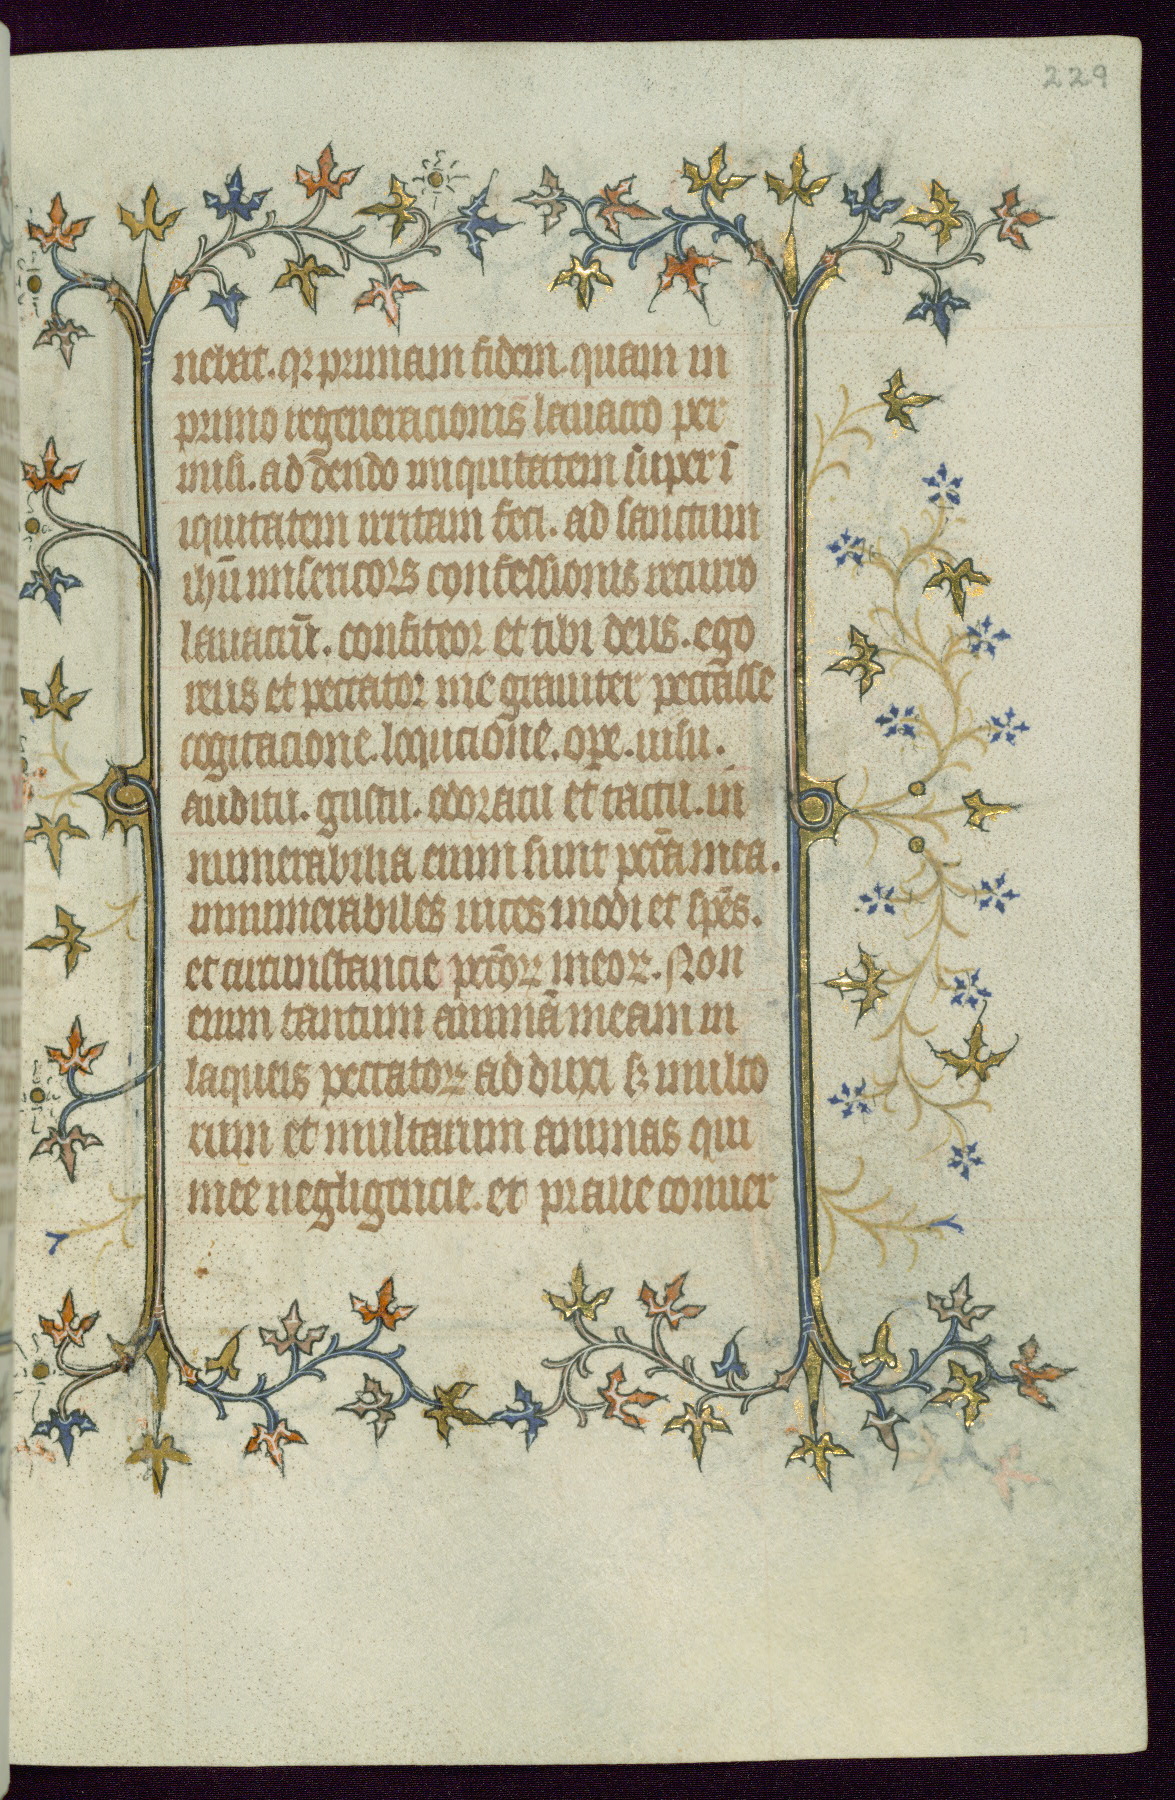 229
nebat. qꝛ primam fidem. quam in
primo regeneracionis lauacro per
misi. addendo iniquitatem super ī
iquitatem irritam feci. ad sanctum
ihū misericors confessionis recurro
lauacrū. confiteor et tibi deus. ego
reus et peccator me grauiter peccasse
cogitacione. loqucione. ope. uisu.
auditu. gustu. odoratu et tactu. in
numerabilia enim sunt peccā mea.
innumerabiles uices modi et spēs.
et circunstancie pecc̄oꝝ meoꝝ. Non
enim tantum animā meam in
laqueis peccatoꝝ adduxi sꝫ multo
rum et multarum animas qui
mee negligencie. et praue conuer